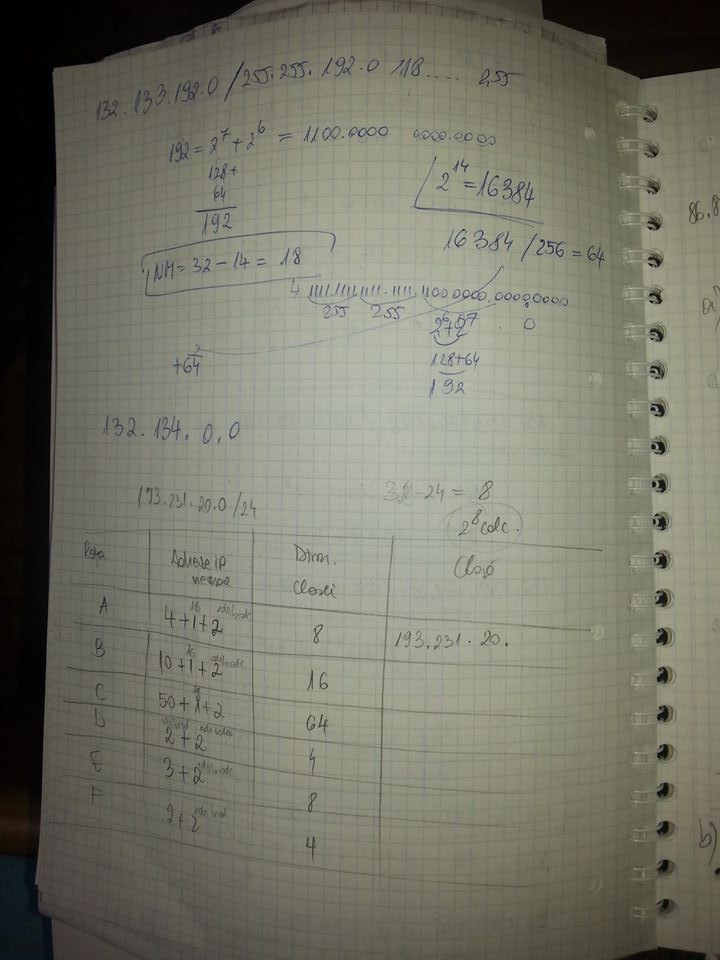 132.133.192.0 / 255.255.192.0 118..... 255
192 = 2^7 + 2^6 = 1100.0000 0000.0000
128+
64
192
2^14 = 16384
16384 / 256 = 64
NM = 32 - 14 = 18
255 255 0
128+64
192
+64
132.134.0.0
193.231.20.0 /24
32-24 = 8
2^8 calc.
Rețea Adrese IP necesare Dim. Clasei Clasă
A 4+1+2 8 193.231.20.
B 10+1+2 16
C 50+1+2 64
D 2+2 4
E 3+2 8
F 2+2 4
86.8
b)